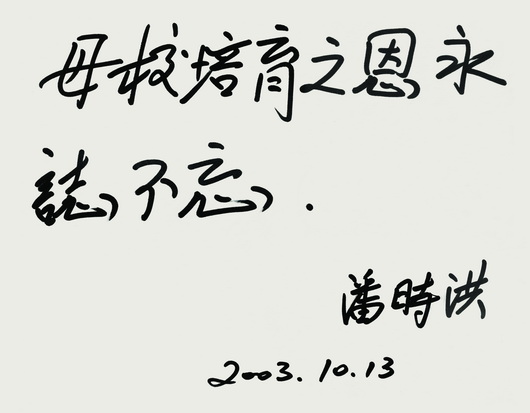 母校培育之恩永
誌不忘.
潘時洪
2003.10.13